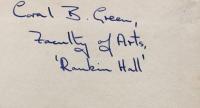 Coral B. Green,
Faculty of Arts,
'Rankin Hall'